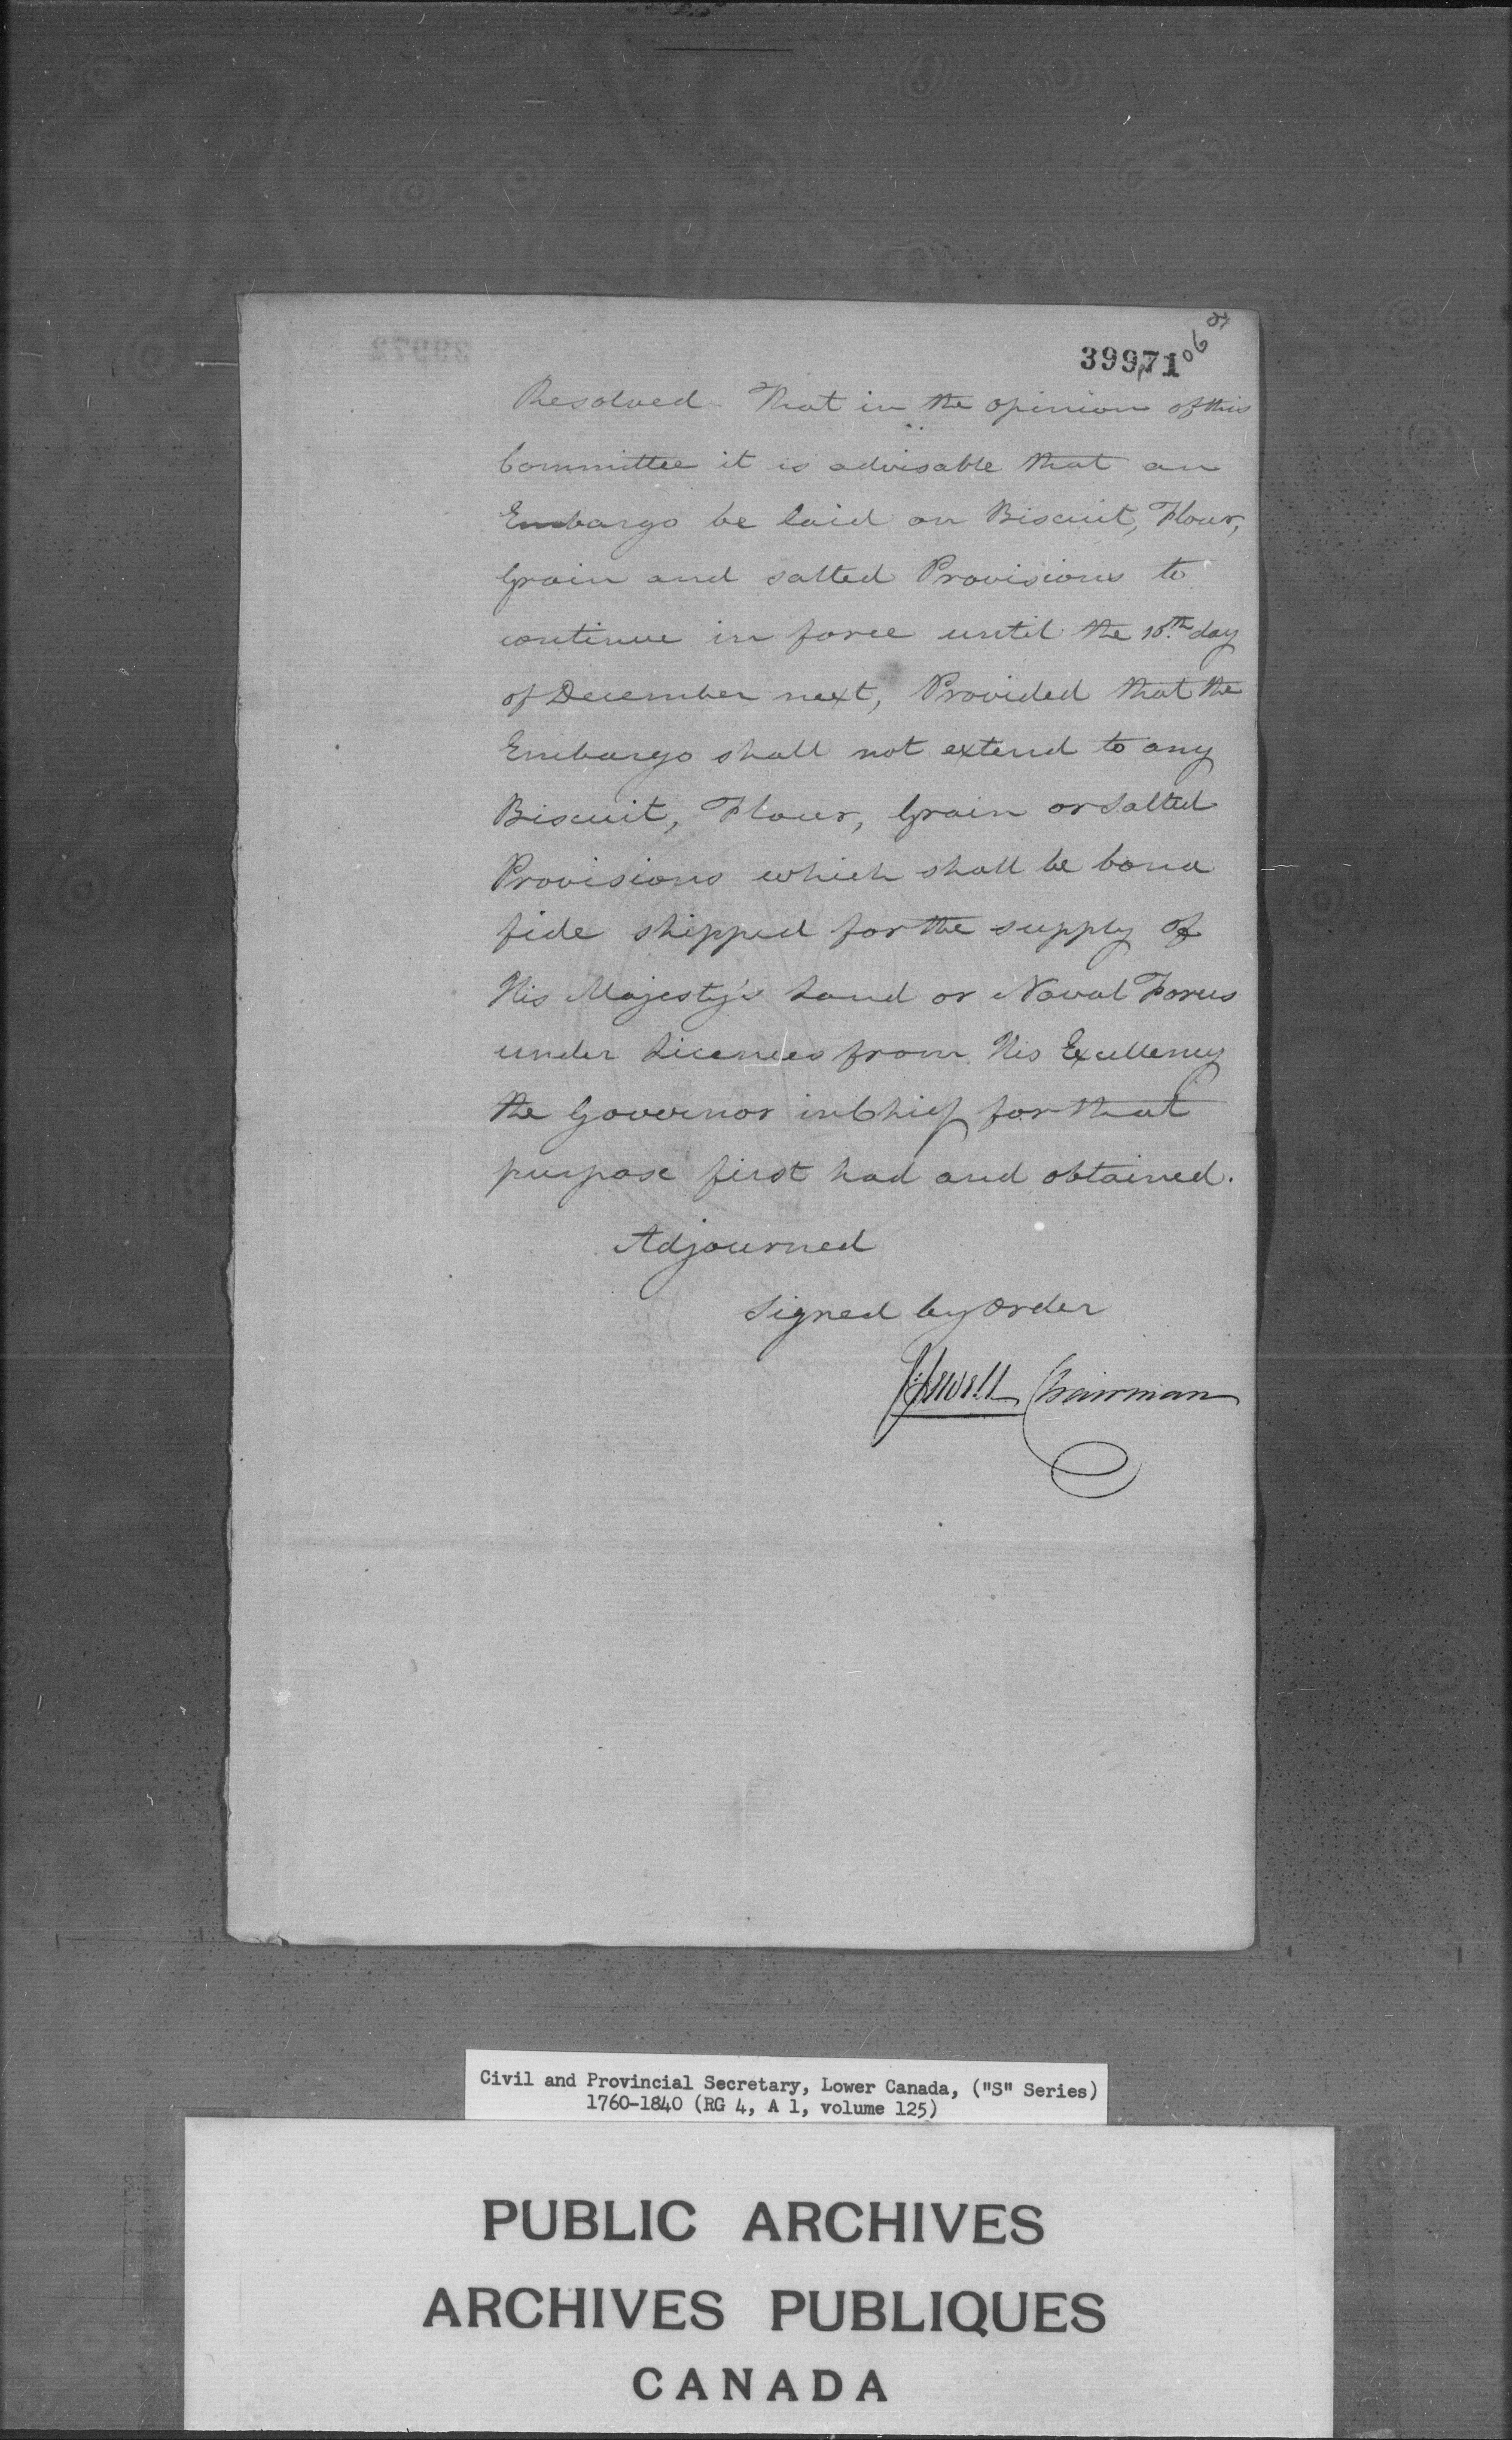 39971
Resolved That in the opinion of this
Committee it is advisable that an
Embargo be laid on Biscuit, Flour,
Grain and salted Provisions to
continue in force until the 10th day
of December next, Provided that the
Embargo shall not extend to any
Biscuit, Flour, Grain or Salted
Provisions which shall be bona
fide shipped for the supply of
His Majesty's Land or Naval Forces
under Licences from His Excellency
the Governor in Chief for that
purpose first had and obtained.
Adjourned
Signed by Order
J: Sewell Chairman
Civil and Provincial Secretary, Lower Canada, ("S" Series)
1760-1840 (RG 4, A 1, volume 125)
PUBLIC ARCHIVES
ARCHIVES PUBLIQUES
CANADA